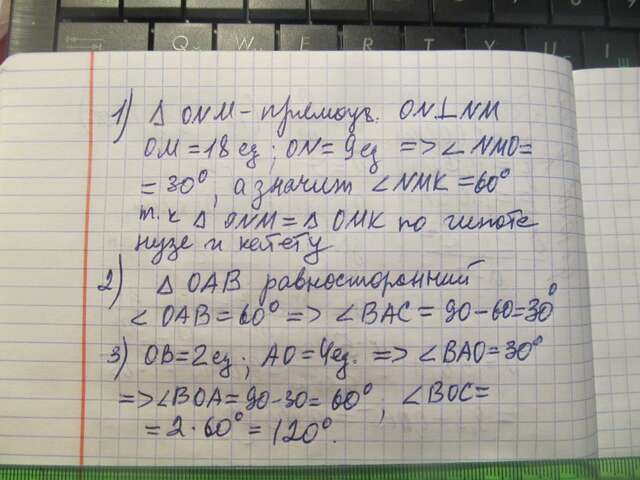 Q W E R T Y U I
1) Δ ONM - прямоуг. ON⊥NM
OM = 18 ед ; ON = 9 ед => ∠NMO =
= 30°, а значит ∠NMK = 60°
т.к Δ ONM = Δ OMK по гипоте
нузе и катету
2) Δ OAB равносторонний
∠ OAB = 60° => ∠BAC = 90-60=30°
3) OB=2ед ; AO=4ед. => ∠BAO=30°
=> ∠BOA=90-30= 60° ; ∠BOC=
= 2·60° = 120°.